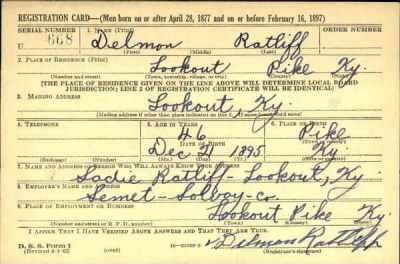 REGISTRATION CARD—(Men born on or after April 28, 1877 and on or before February 16, 1897)
SERIAL NUMBER 1. NAME (Print) ORDER NUMBER
U 668 Delmon Ratliff
(First) (Middle) (Last)
2. PLACE OF RESIDENCE (Print)
Lookout Pike Ky.
(Number and street) (Town, township, village, or city) (County) (State)
[THE PLACE OF RESIDENCE GIVEN ON THE LINE ABOVE WILL DETERMINE LOCAL BOARD
JURISDICTION; LINE 2 OF REGISTRATION CERTIFICATE WILL BE IDENTICAL]
3. MAILING ADDRESS
Lookout, Ky.
[Mailing address if other than place indicated on line 2. If same insert word same]
4. TELEPHONE 5. AGE IN YEARS 6. PLACE OF BIRTH
46 Pike
DATE OF BIRTH
Dec 21 1895 Ky
(Exchange) (Number) (Mo.) (Day) (Yr.) (State or country)
7. NAME AND ADDRESS OF PERSON WHO WILL ALWAYS KNOW YOUR ADDRESS
Sadie Ratliff - Lookout, Ky.
8. EMPLOYER'S NAME AND ADDRESS
Semet-Solvay-Co.
9. PLACE OF EMPLOYMENT OR BUSINESS
Lookout Pike Ky.
(Number and street or R. F. D. number) (Town) (County) (State)
I AFFIRM THAT I HAVE VERIFIED ABOVE ANSWERS AND THAT THEY ARE TRUE.
D. S. S. Form 1
(Revised 4-1-42) Delmon Ratliff
(Registrant's signature)